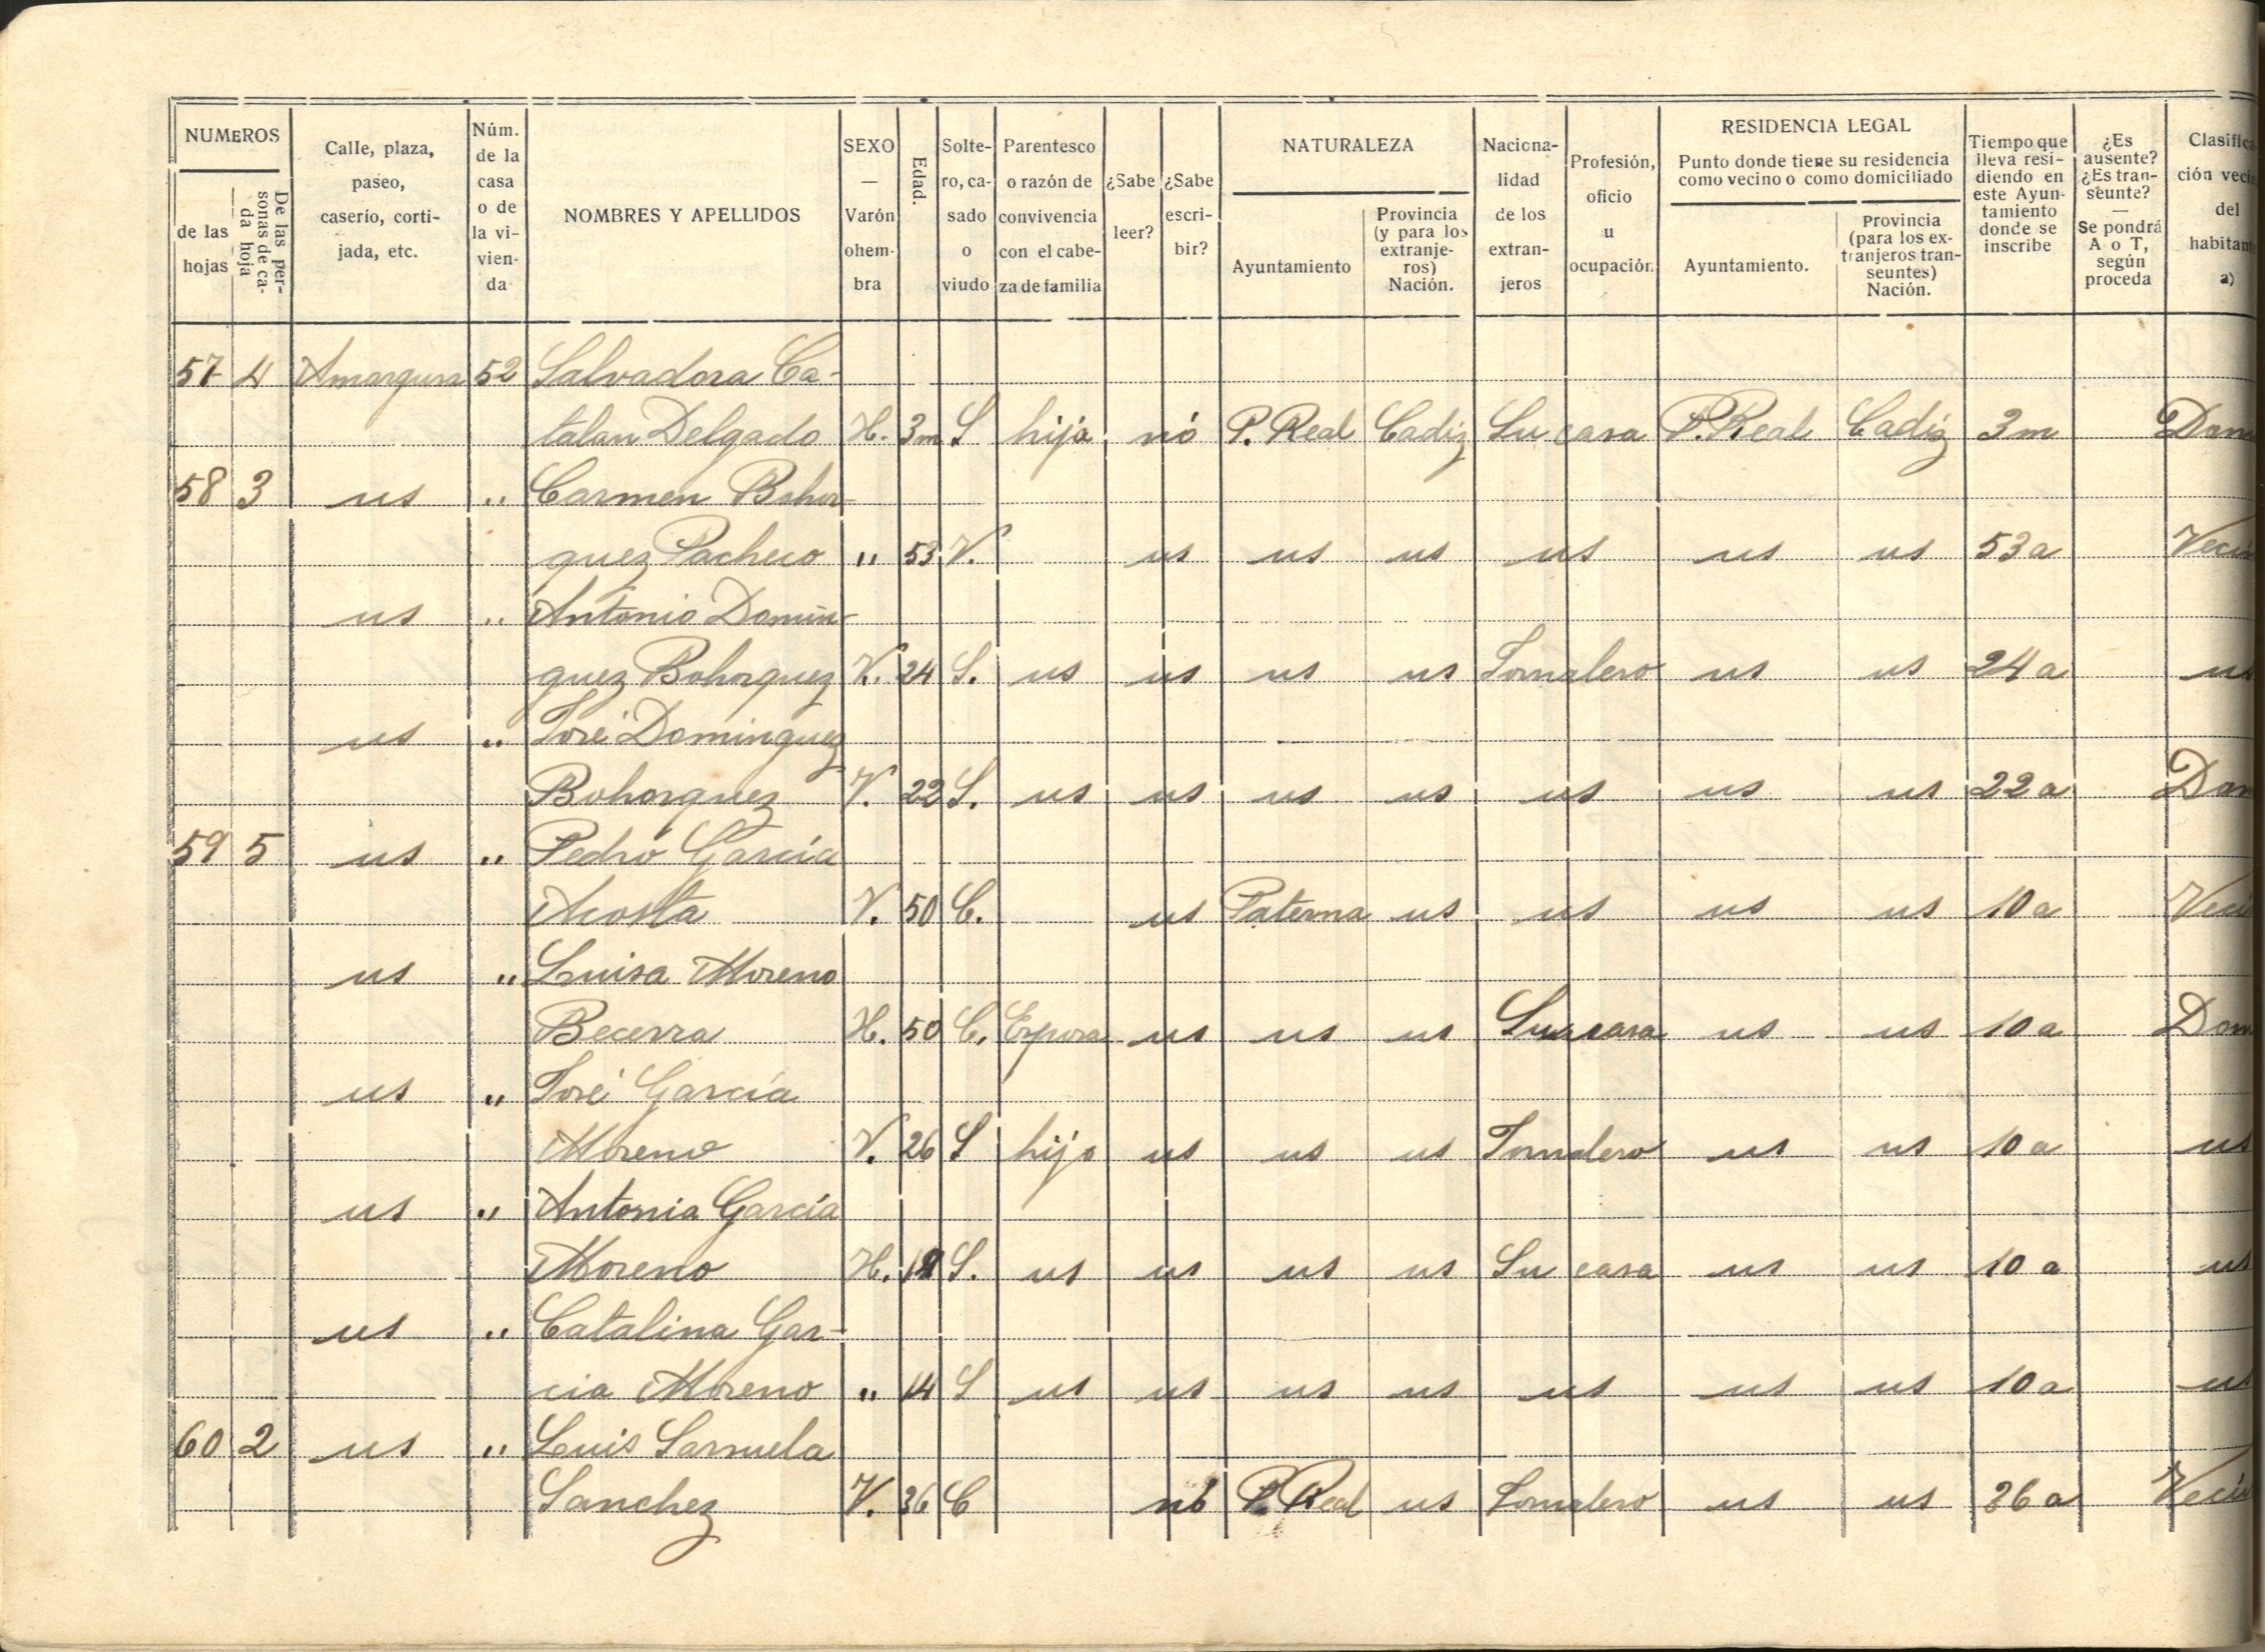 NUMEROS
de las hojas
De las personas de cada hoja
Calle, plaza, paseo, caserío, cortijada, etc.
Núm. de la casa o de la vivienda
NOMBRES Y APELLIDOS
SEXO — Varón o hembra
Edad.
Soltero, casado o viudo
Parentesco o razón de convivencia con el cabeza de familia
¿Sabe leer?
¿Sabe escribir?
NATURALEZA
Ayuntamiento
Provincia (y para los extranjeros) Nación.
Nacionalidad de los extranjeros
Profesión, oficio u ocupación.
RESIDENCIA LEGAL
Punto donde tiene su residencia como vecino o como domiciliado
Ayuntamiento.
Provincia (para los extranjeros transeuntes) Nación.
Tiempo que lleva residiendo en este Ayuntamiento donde se inscribe
¿Es ausente? ¿Es transeunte? — Se pondrá A o T, según proceda
Clasifica ción veci del habitan a)
57 4 Amargura 52 Salvadora Ca-
talan Delgado H. 3m S hija nó P. Real Cadiz Su casa P. Real Cadiz 3m Dom
58 3 us " Carmen Bohor-
quez Pacheco " 53 V. us us us us us us 53 a Veci
us " Antonio Domin-
guez Bohorquez V. 24 S. us us us us Jornalero us us 24 a us
us " José Dominguez
Bohorquez V. 22 S. us us us us us us us 22 a Dom
59 5 us " Pedro García
Acosta V. 50 C. us Paterna us us us us 10 a Veci
us " Luisa Moreno
Becerra H. 50 C. Esposa us us us Su casa us us 10 a Dom
us " José García
Moreno V. 26 S hijo us us us Jornalero us us 10 a us
us " Antonia García
Moreno H. S. us us us us Su casa us us 10 a us
us " Catalina Gar-
cia Moreno " 14 S us us us us us us us 10 a us
60 2 us " Luis
Sanchez V. 36 C nó P. Real us Jornalero us us 36 a Veci